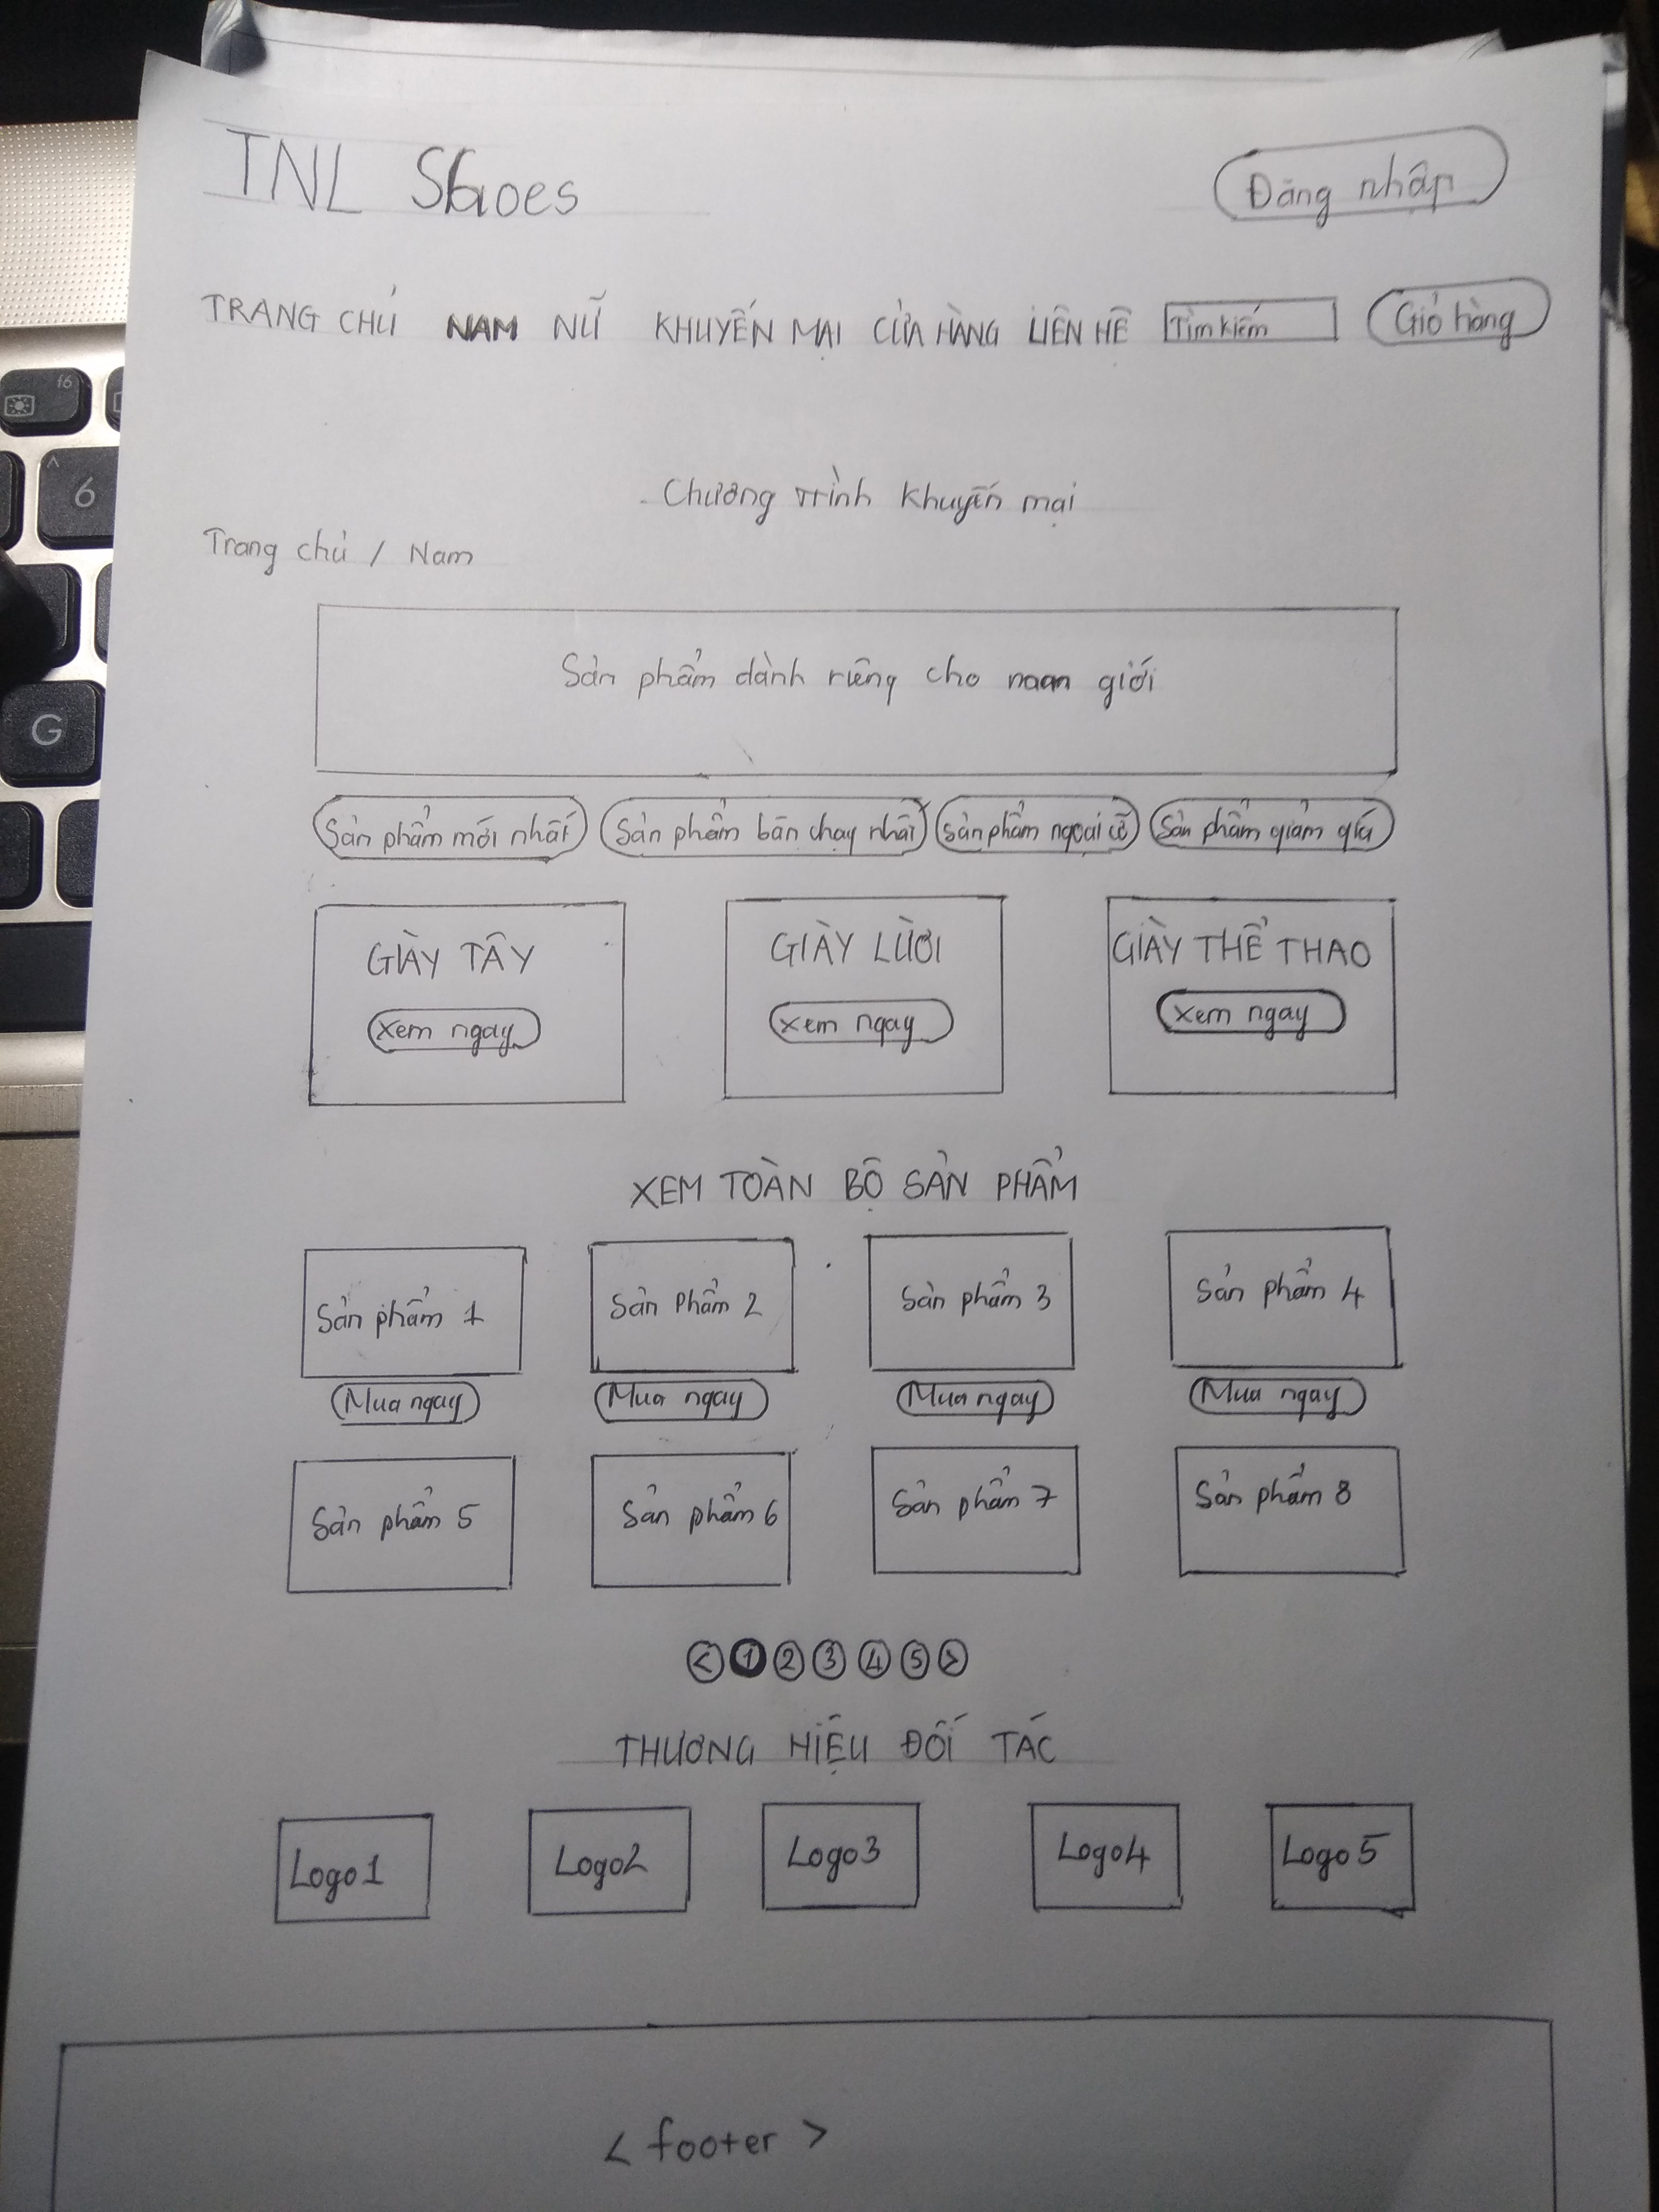 TNL Shoes
Đăng nhập
TRANG CHỦ NAM NỮ KHUYẾN MẠI CỬA HÀNG LIÊN HỆ Tìm kiếm Giỏ hàng
Chương trình khuyến mại
Trang chủ / Nam
Sản phẩm dành riêng cho nam giới
Sản phẩm mới nhất Sản phẩm bán chạy nhất Sản phẩm ngoại cỡ Sản phẩm giảm giá
GIÀY TÂY GIÀY LƯỜI GIÀY THỂ THAO
Xem ngay Xem ngay Xem ngay
XEM TOÀN BỘ SẢN PHẨM
Sản phẩm 1 Sản Phẩm 2 Sản phẩm 3 Sản phẩm 4
Mua ngay Mua ngay Mua ngay Mua ngay
Sản phẩm 5 Sản phẩm 6 Sản phẩm 7 Sản phẩm 8
< 1 2 3 4 5 >
THƯƠNG HIỆU ĐỐI TÁC
Logo1 Logo2 Logo3 Logo4 Logo5
< footer >
f6
^
6
G